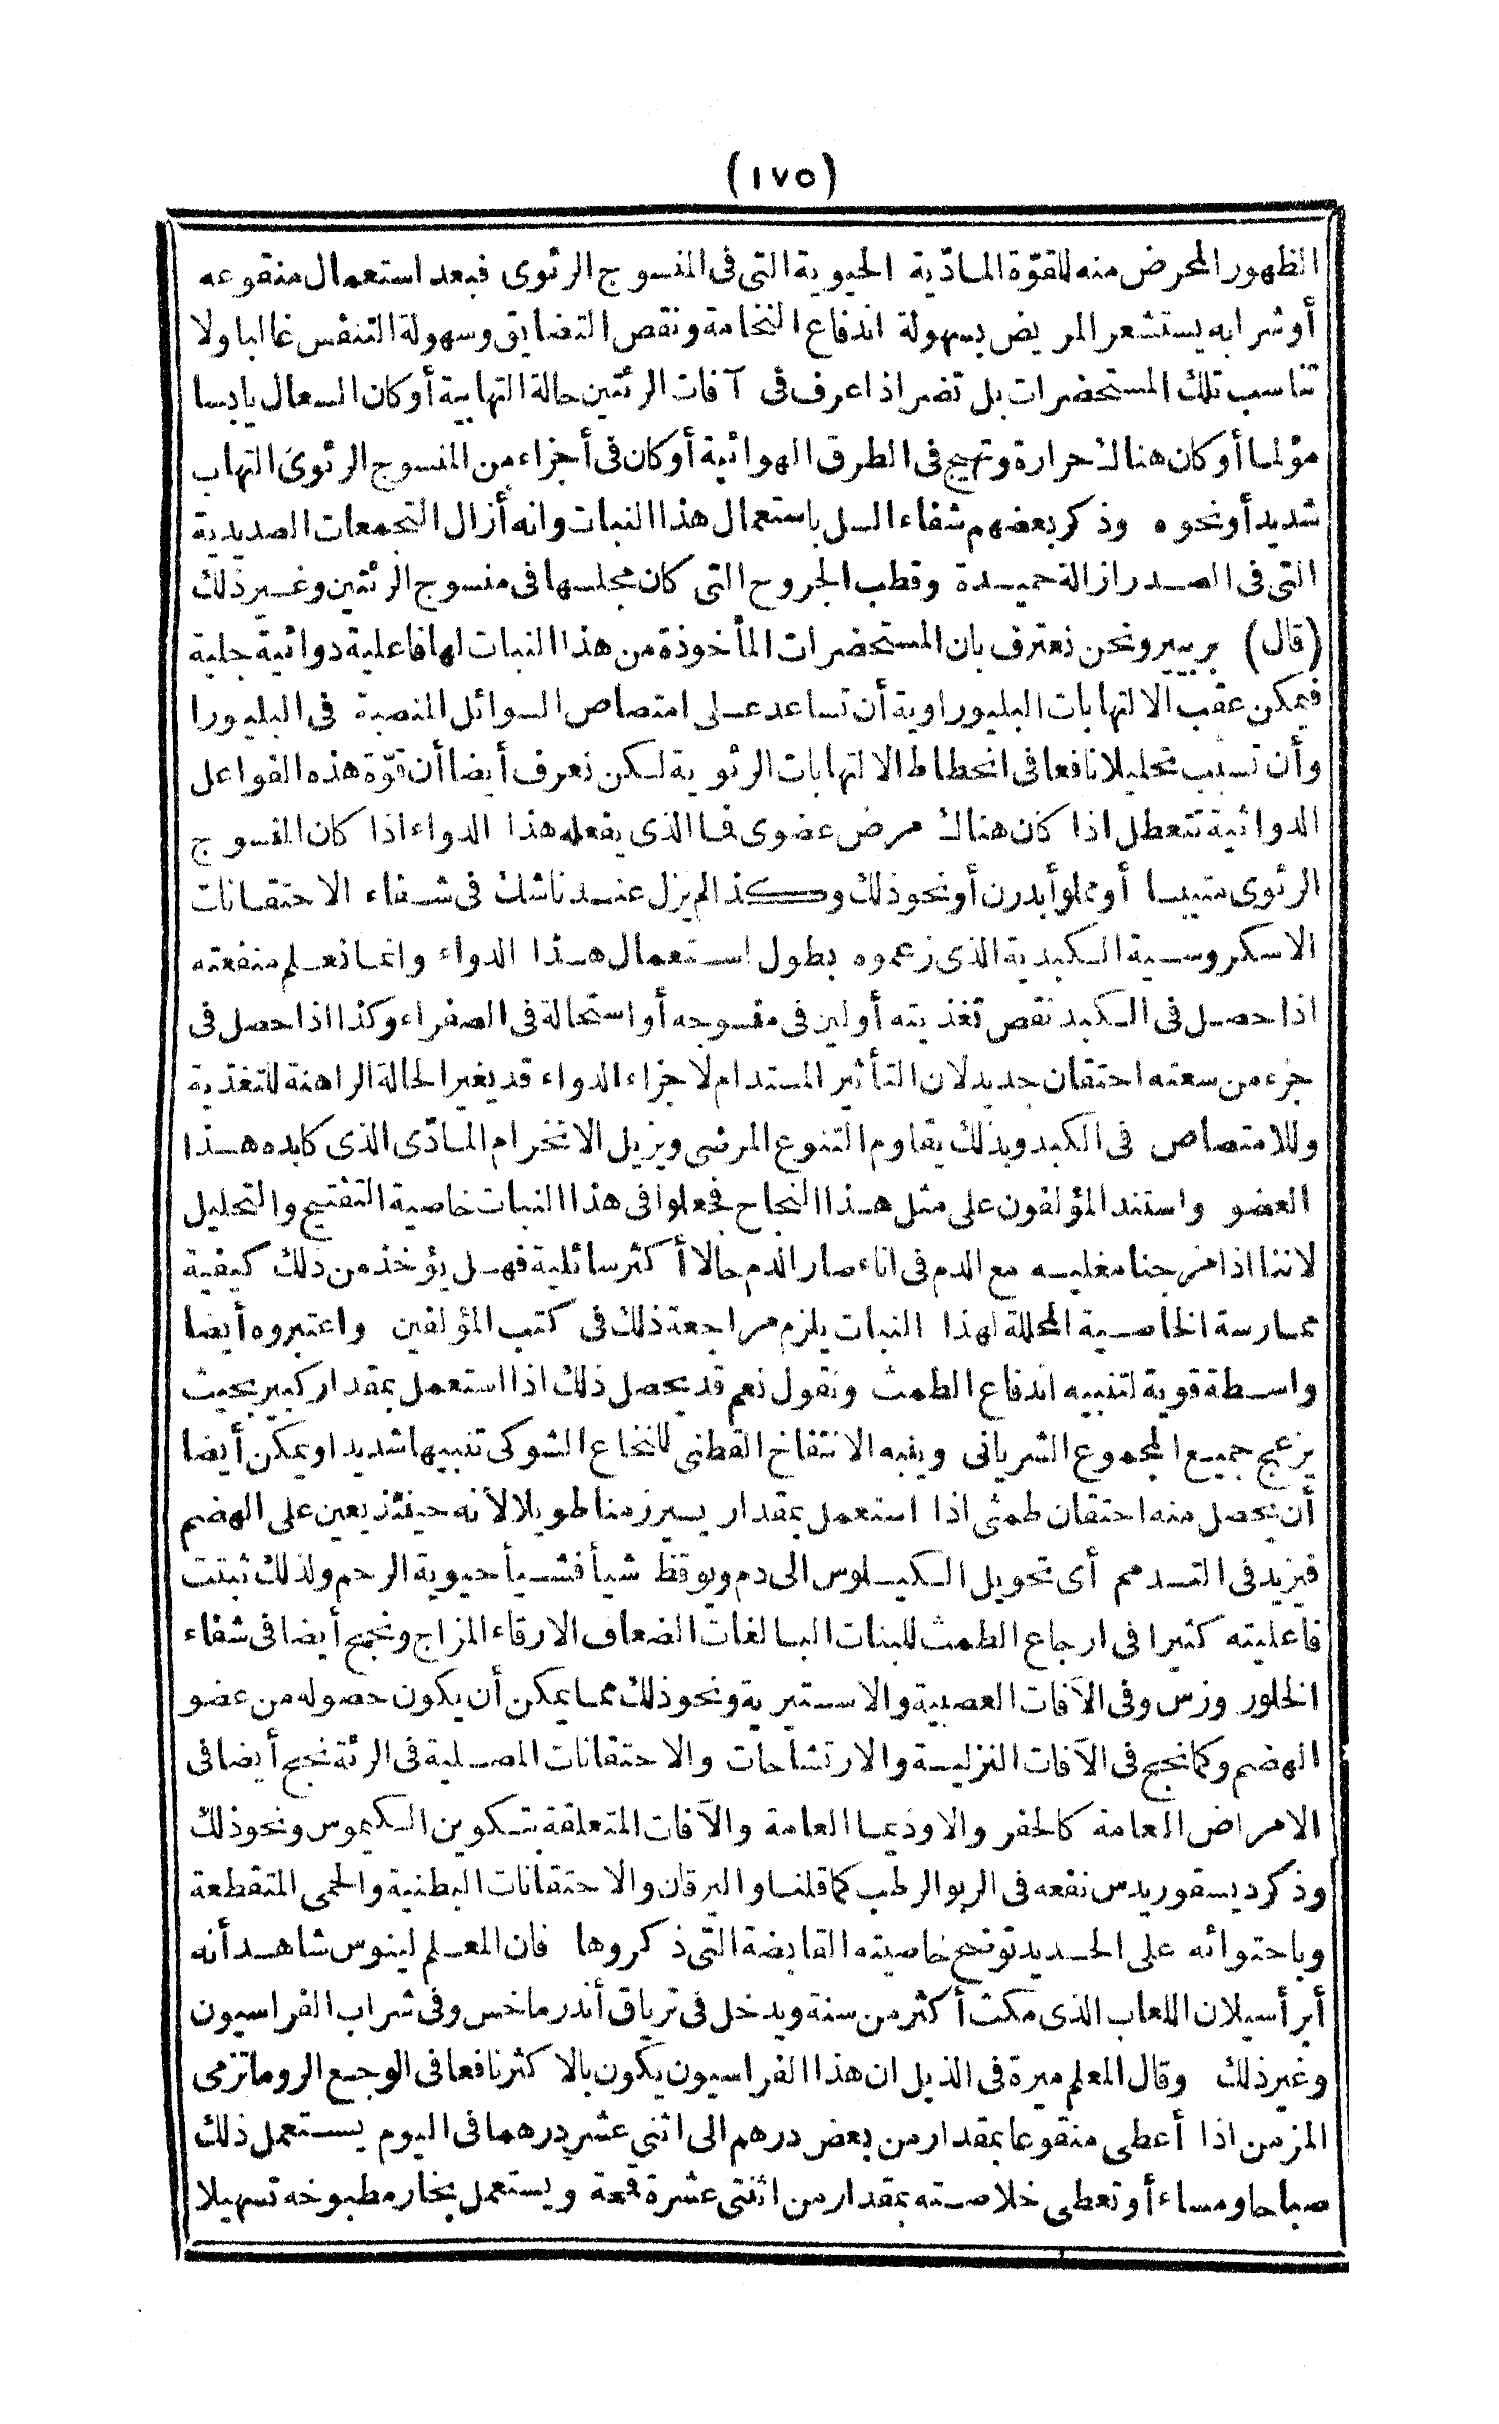 (١٧٥)
الظهور المحرض منه للقوّة المادّية الحيوية التى فى المنسوج الرئوى فبعد استعمال منقوعه
أو شرابه يستشعر المريض بسهولة اندفاع النخامة ونقص التضايق وسهولة التنفس غالبا ولا
تناسب تلك المستحضرات بل تضر اذا عرف فى آفات الرئتين حالة التهابية أو كان السعال يابسا
مؤلما أو كان هناك حرارة وتهيج فى الطرق الهوائية أو كان فى أجزاء من المنسوج الرئوى التهاب
شديد أو نحوه وذكر بعضهم شفاء السل باستعمال هذا النبات وانه أزال التجمعات الصديدية
التى فى الصدر ازالة حميدة وقطب الجروح التى كان مجلسها فى منسوج الرئتين وغير ذلك
(قال) بربيير ونحن نعترف بان المستحضرات المأخوذة من هذا النبات لها فاعلية دوائية جلية
فيمكن عقب الالتهابات البليوراوية أن تساعد على امتصاص السوائل المنصبة فى البليورا
وأن تسبب تحليلا نافعا فى انحطاط الالتهابات الرئوية لكن نعرف أيضا أن قوّة هذه الفواعل
الدوائية تتعطل اذا كان هناك مرض عضوى فما الذى يفعله هذا الدواء اذا كان المنسوج
الرئوى متيبسا أو مملوأ بدرن أو نحو ذلك وكذا لم يزل عندنا شك فى شفاء الاحتقانات
الاسكروسية الكبدية الذى زعموه بطول استعمال هذا الدواء وانما نعلم منفعته
اذا حصل فى الكبد نقص تغذيته أو لين فى منسوجه أو استحالة فى الصفراء وكذا اذا حصل فى
جزء من سعته احتقان جديد لان التأثير المستدام لاجزاء الدواء قد يغير الحالة الراهنة للتغذية
وللامتصاص فى الكبد وبذلك يقاوم التنوع المرضى ويزيل الانخرام المادّى الذى كابده هذا
العضو واستند المؤلفون على مثل هذا النجاح فجعلوا فى هذا النبات خاصية التفتيح والتحليل
لاننا اذا مزجنا مغليه مع الدم فى اناء صار الدم حالا أكثر سائلية فهل يؤخذ من ذلك كيفية
ممارسة الخاصية المحللة لهذا النبات يلزم مراجعة ذلك فى كتب المؤلفين واعتبروه أيضا
واسطة قوية لتنبيه اندفاع الطمث ونقول نعم قد يحصل ذلك اذا استعمل بمقدار كبير بحيث
يزعج جميع المجموع الشريانى وينبه الانتفاخ القطنى للنخاع الشوكى تنبيها شديدا ويمكن أيضا
أن يحصل منه احتقان طمثى اذا استعمل بمقدار يسير زمنا طويلا لأنه حينئذ يعين على الهضم
فيزيد فى التدمم أى تحويل الكيلوس الى دم ويوقظ شيأ فشيأ حيوية الرحم ولذلك ثبتت
فاعليته كثيرا فى ارجاع الطمث للبنات البالغات الضعاف الارقاء المزاج ونجح أيضا فى شفاء
الخلوروزس وفى الآفات العصبية والاستيرية ونحو ذلك مما يمكن أن يكون حصوله من عضو
الهضم وكما نجح فى الآفات النزلية والارتشاحات والاحتقانات المصلية فى الرئة نجح أيضا فى
الامراض العامة كالحفر والاوذيما العامة والآفات المتعلقة بتكوين الكيموس ونحو ذلك
وذكر ديسقوريدس نفعه فى الربو الرطب كما قلنا واليرقان والاحتقانات البطنية والحمى المتقطعة
وباحتوائه على الحديد توضح خاصيته القابضة التى ذكروها فان المعلم لينوس شاهد أنه
أبرأ سيلان اللعاب الذى مكث أكثر من سنة ويدخل فى ترياق أندرماخس وفى شراب الفراسيون
وغير ذلك وقال المعلم ميرة فى الذيل ان هذا الفراسيون يكون بالاكثر نافعا فى الوجع الروماتزمى
المزمن اذا أعطى منقوعا بمقدار من بعض درهم الى اثنى عشر درهما فى اليوم يستعمل ذلك
صباحا ومساء أو تعطى خلاصته بمقدار من اثنتى عشرة قمحة ويستعمل بخار مطبوخه تسهيلا